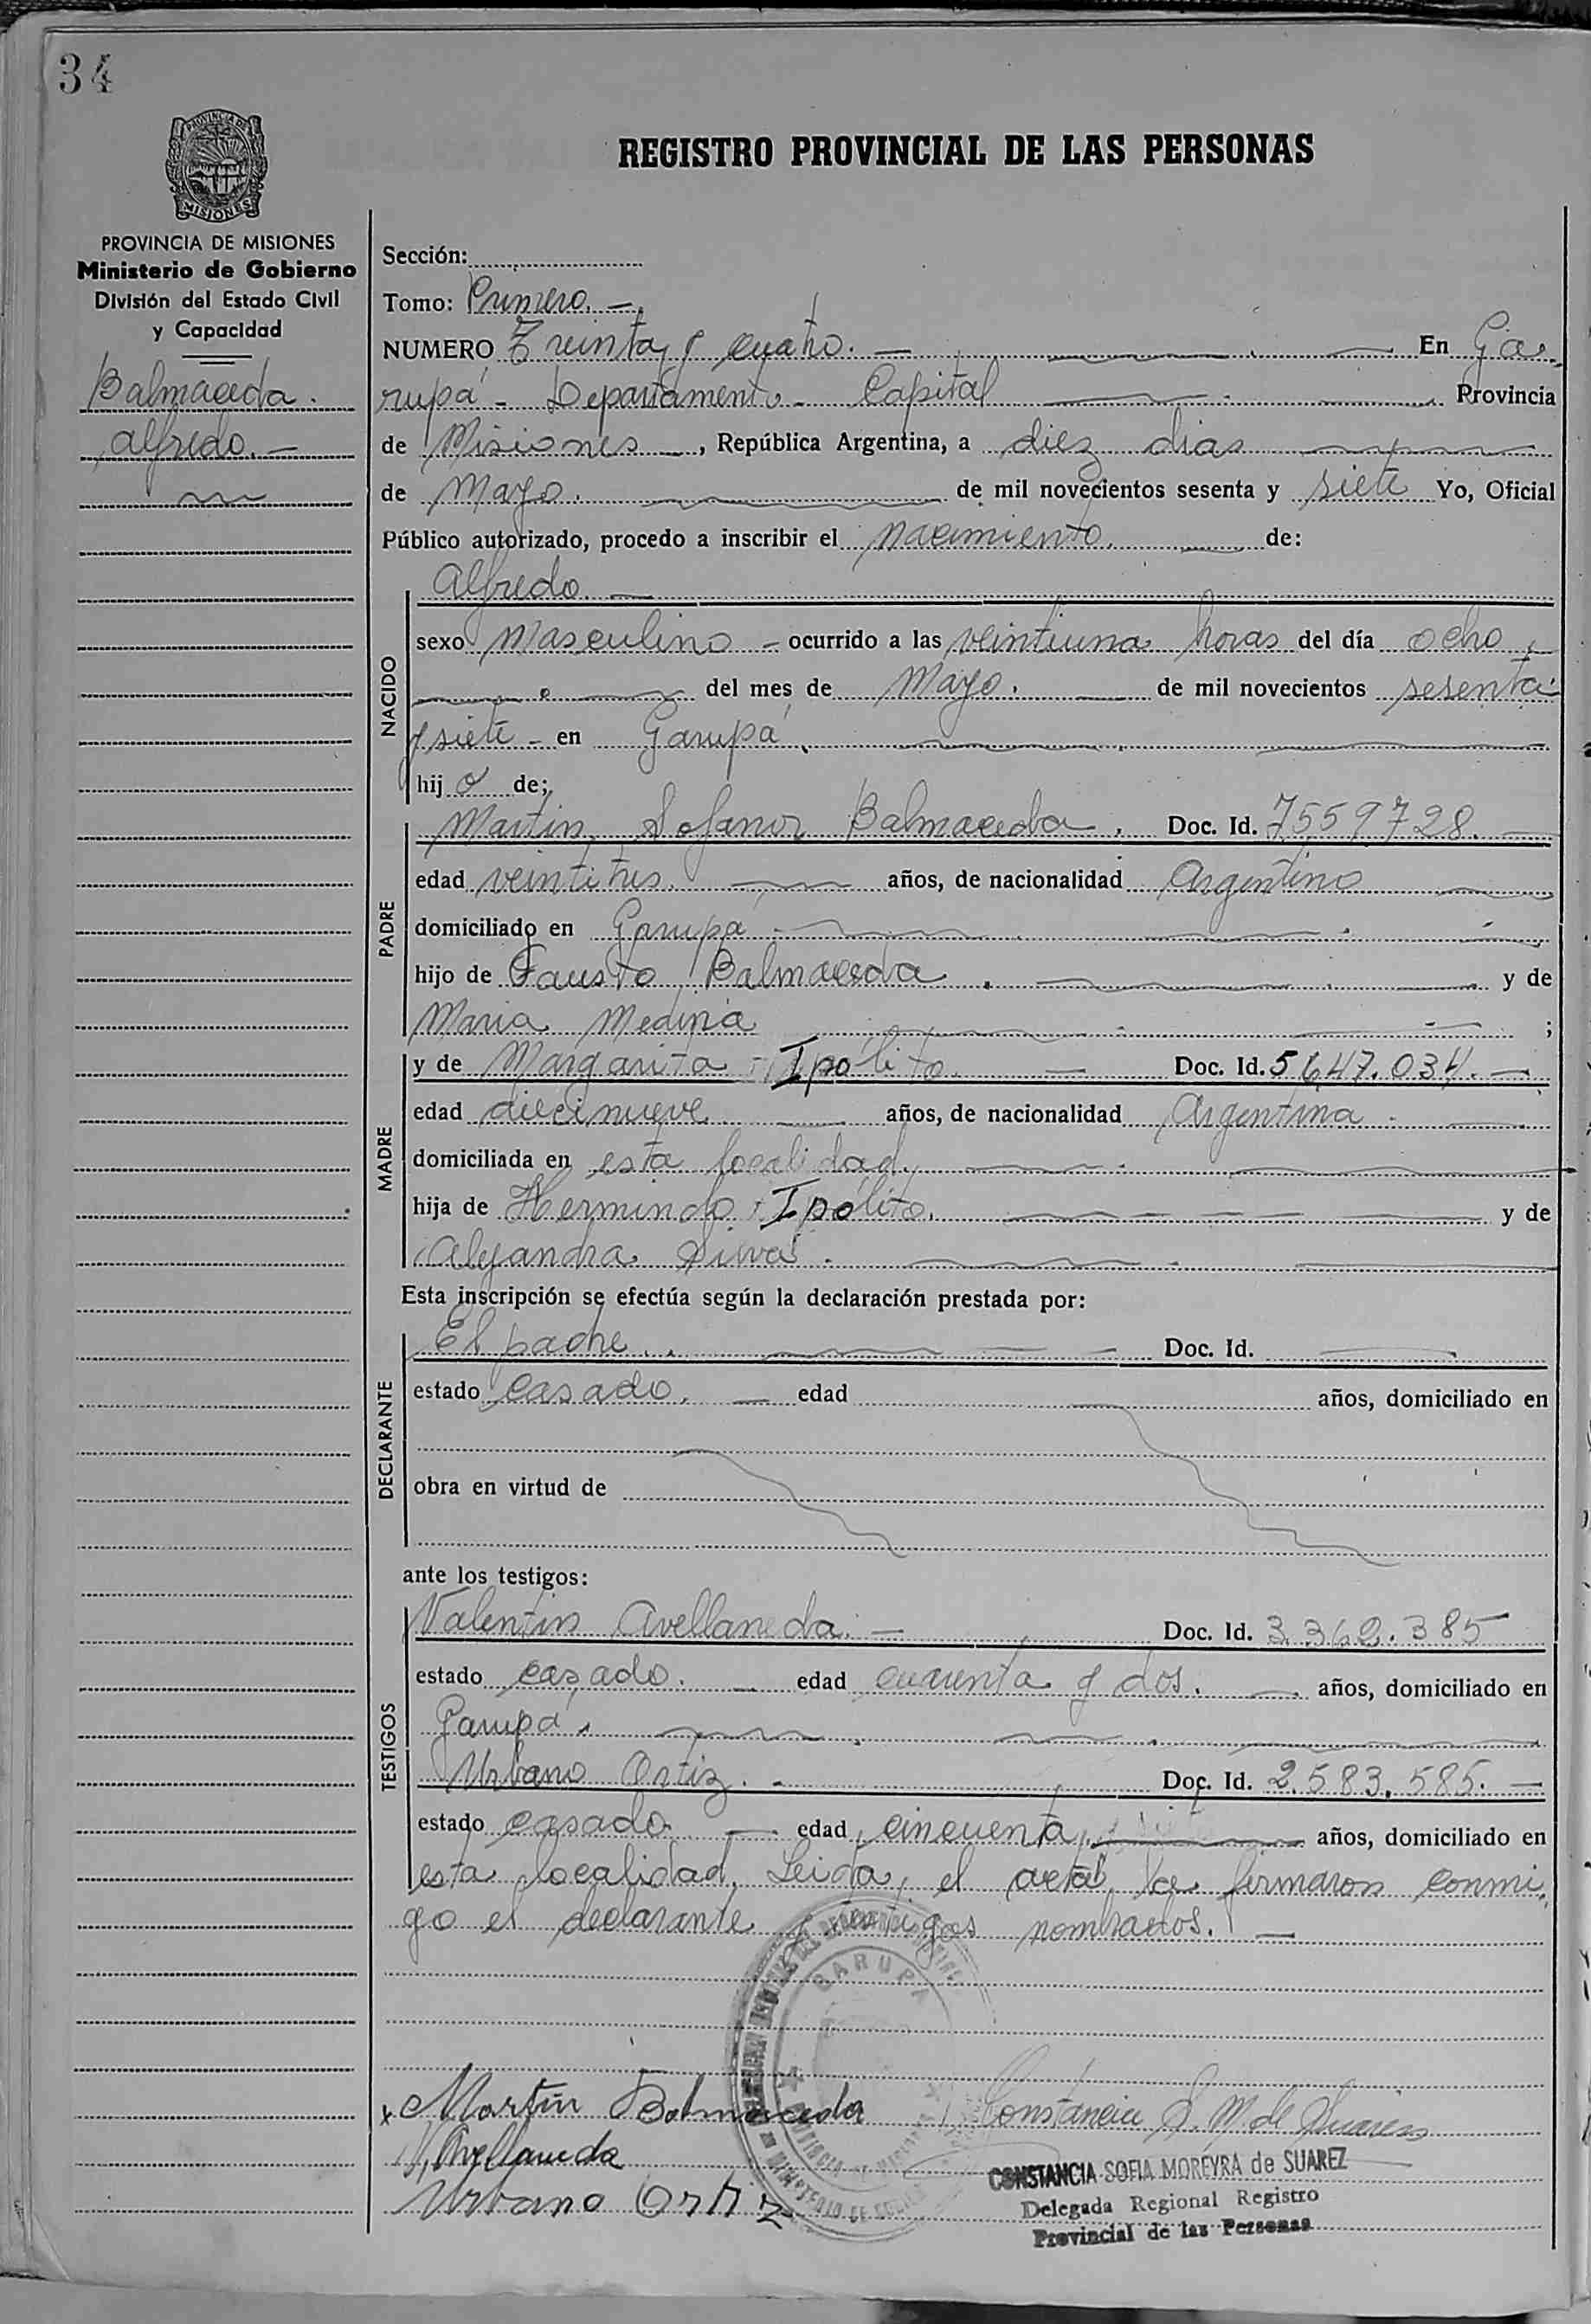 34
PROVINCIA DE
MISIONES
REGISTRO PROVINCIAL DE LAS PERSONAS
PROVINCIA DE MISIONES
Ministerio de Gobierno
División del Estado Civil
y Capacidad
Balmaceda.
Alfredo. —
Sección:
Tomo: Primero. —
NUMERO Treinta y cuatro. — En Ga-
rupá - Departamento - Capital Provincia
de Misiones —, República Argentina, a diez dias
de Mayo. de mil novecientos sesenta y siete Yo, Oficial
Público autorizado, procedo a inscribir el nacimiento. de:
Alfredo —
NACIDO
sexo Masculino - ocurrido a las veintiuna horas del día ocho
del mes de Mayo. de mil novecientos sesenta
y siete - en Garupá
hijo de;
PADRE
Martin, Sofanor Balmaceda. Doc. Id. 7559728. —
edad veintitres. años, de nacionalidad Argentino
domiciliado en Garupá
hijo de Fausto Balmaceda. y de
Maria Medina ;
MADRE
y de Margarita Ipolito. — Doc. Id. 5.647.034. —
edad diecinueve años, de nacionalidad Argentina.
domiciliada en esta localidad.
hija de Hermindo Ipólito. y de
Alejandra Silva.
Esta inscripción se efectúa según la declaración prestada por:
DECLARANTE
El padre. Doc. Id.
estado casado. — edad años, domiciliado en
obra en virtud de
ante los testigos:
TESTIGOS
Valentin Avellaneda. — Doc. Id. 3.362.385
estado casado. — edad cuarenta y dos. — años, domiciliado en
Garupá.
Urbano Ortiz. - Doc. Id. 2.583.585. —
estado casado — edad cincuenta años, domiciliado en
esta localidad. Leida, el acta, la firmaron conmi-
go el declarante y testigos nombrados. —
GARUPA
Martin Balmaceda
Constancia S. M. de Suarez
V. Avellaneda
CONSTANCIA SOFIA MOREYRA de SUAREZ
Urbano Ortiz
Delegada Regional Registro
Provincial de las Personas